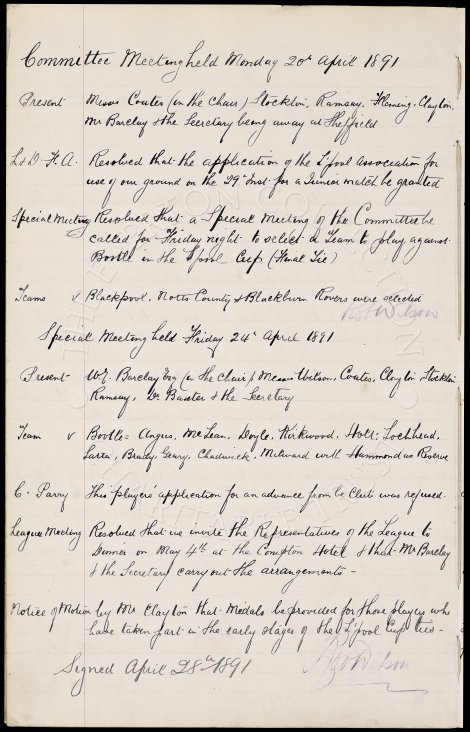 Committee Meeting held Monday 20th April 1891
Present Messrs Coates (in the chair) Stockton, Ramsay, Fleming, Clayton,
Mr Barclay & the Secretary being away at Sheffield
L & D. F. A. Resolved that the application of the L'pool Association for
use of our ground on the 29th Inst. for a Junior match be granted
Special Meeting Resolved that a Special Meeting of the Committee be
called for Friday night to select a Team to play against
Bootle in the L'pool Cup (Final Tie)
Teams v Blackpool, Notts County & Blackburn Rovers were selected
Wilson
Special Meeting held Friday 24th April 1891
Present W.E. Barclay Esq (in the chair) Messrs Wilson, Coates, Clayton Stockton
Ramsay, Dr Baxter & the Secretary
Team v Bootle = Angus, McLean, Doyle, Kirkwood, Holt, Lochhead,
Latta, Brady Geary, Chadwick, Milward with Hammond as Reserve
C. Parry This player's application for an advance from the Club was refused.
League Meeting Resolved that we invite the Representatives of the League to
Dinner on May 4th at the Compton Hotel & that Mr Barclay
& the Secretary carry out the arrangements -
Notice of Motion by Mr Clayton that Medals be provided for those players who
have taken part in the early stages of the L'pool Cup ties -
Signed April 28th 1891
Wilson